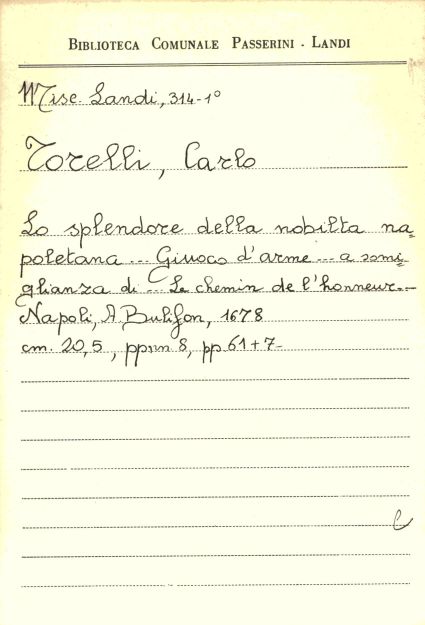 BIBLIOTECA COMUNALE PASSERINI - LANDI
Misc. Landi, 314-1º
Torelli, Carlo
Lo splendore della nobilta na=
poletana ... Giuoco d'arme ... a somi=
glianza di ... Le chemin de l'honneur...
Napoli, A Bulifon, 1678
cm. 20,5, ppnn 8, pp 61+7-